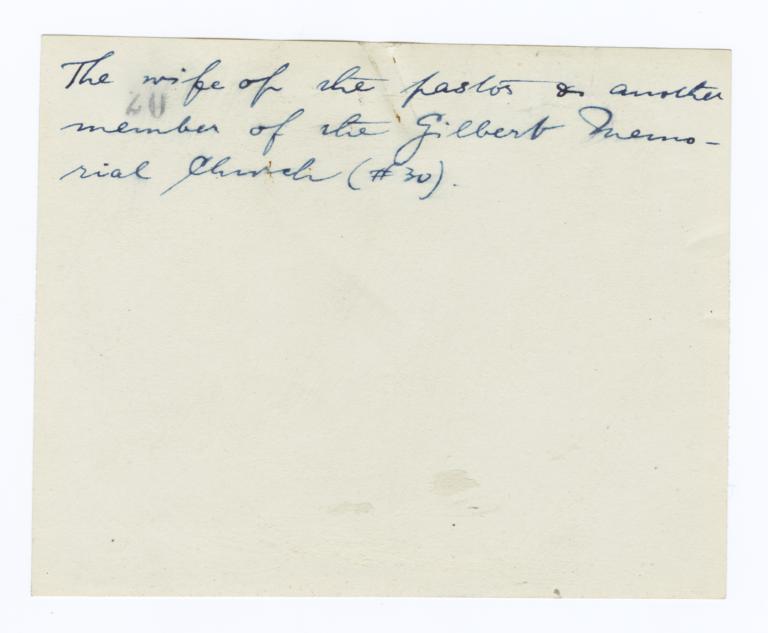 The wife of the pastor & another
20
member of the Gilbert Memo-
rial Church (#30).